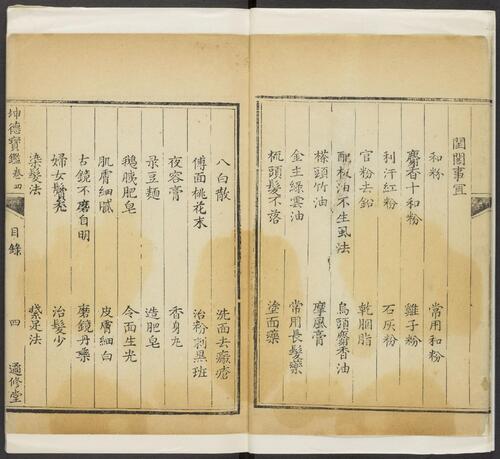 閨閣事宜
和粉 常用和粉
麝香十和粉 雞子粉
利汗紅粉 石灰粉
官粉去鉛 乾胭脂
配板油不生虱法 烏頭麝香油
搽頭竹油 摩風膏
金主綠雲油 常用長髮藥
梳頭髮不落 塗面藥
八白散 洗面去瘢瘡
傅面桃花末 治粉刺黑斑
夜容膏 香身丸
菉豆麵 造肥皂
鵝胰肥皂 令面生光
肌膚細膩 皮膚細白
古鏡不磨自明 磨鏡丹藥
婦女鬢禿 治髮少
染髮法 紮足法
坤德寶鑑 卷四 目錄 四 適修堂